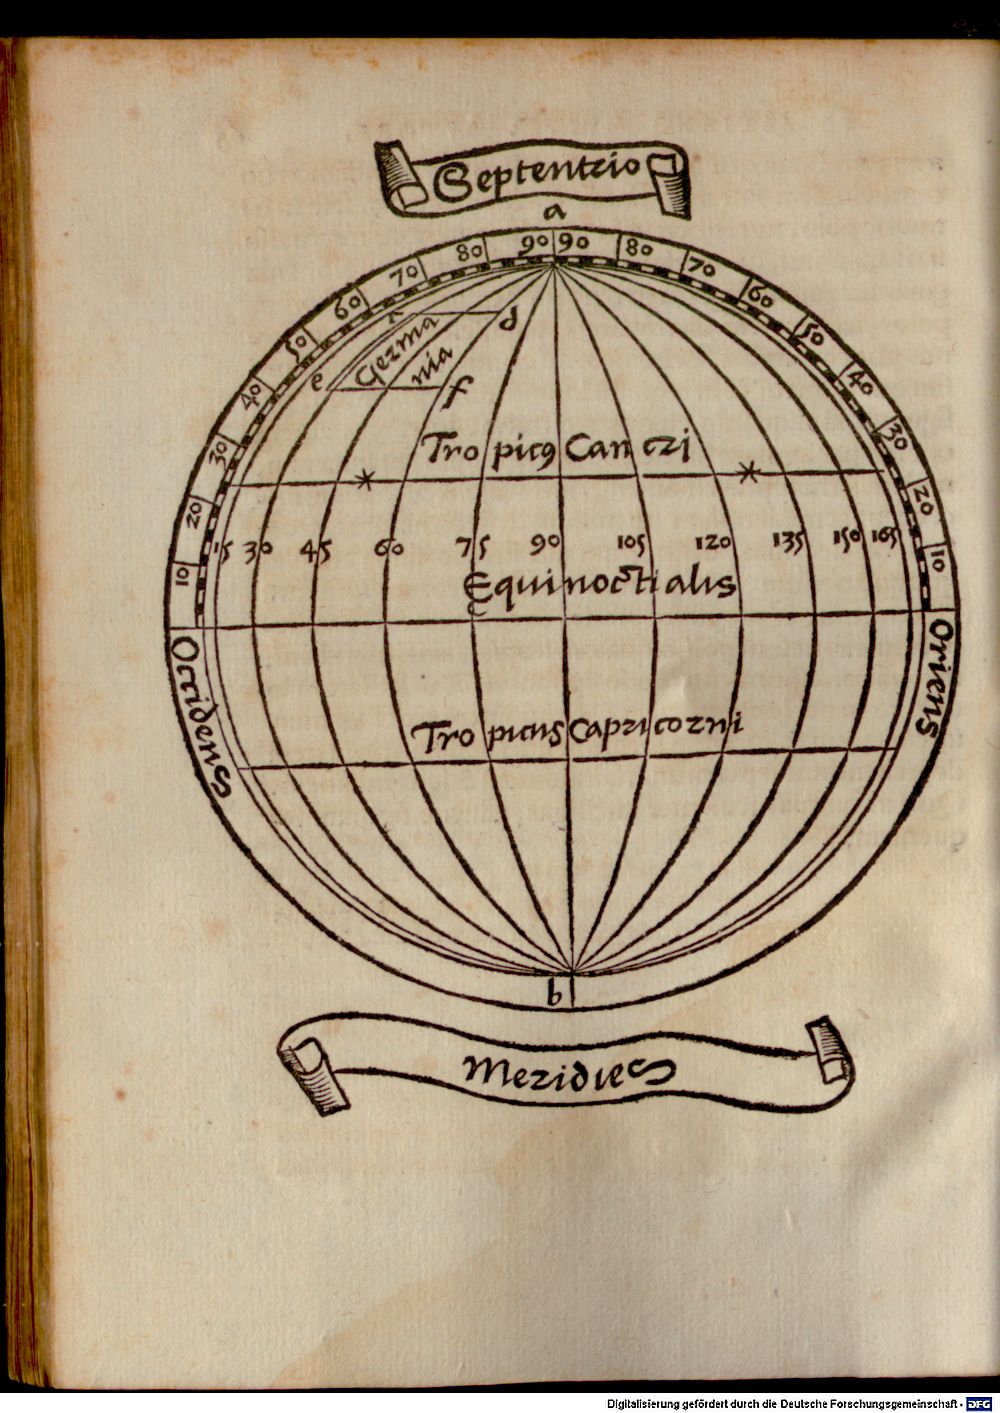 Septentrio
a
90 90
80 80
70 70
60 60
50 50
40 40
30 30
20 20
10 10
c d
Germa
nia
e f
Tro picꝰ Can cri
15 30 45 60 75 90 105 120 135 150 165
Equinoctialis
Occidens
Oriens
Tro picus Capricorni
b
Meridies
Digitalisierung gefördert durch die Deutsche Forschungsgemeinschaft - DFG